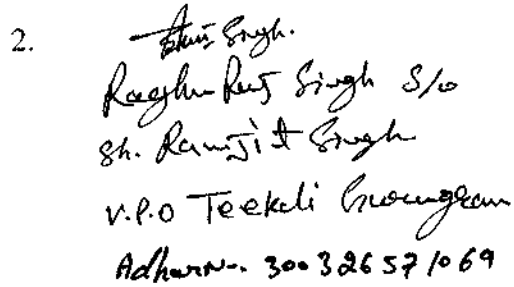 2. Singh.
Raghu Raj Singh S/o
Sh. Ramjit Singh
V.P.O Teekli Gurugram
Adhar No. 300326571069